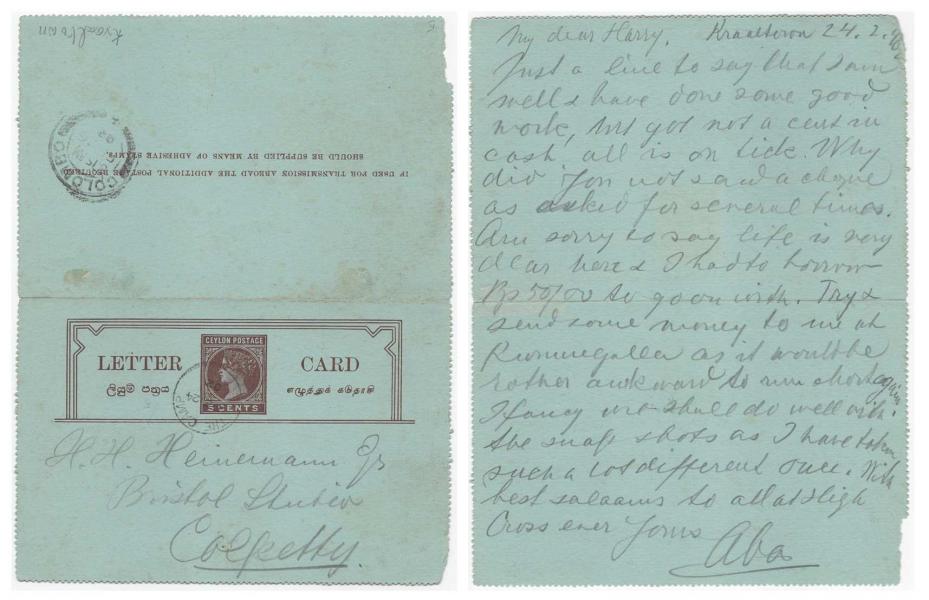 Kraaltown
COLOMBO
IF USED FOR TRANSMISSION ABROAD THE ADDITIONAL POSTAGE REQUIRED
SHOULD BE SUPPLIED BY MEANS OF ADHESIVE STAMPS.
LETTER CARD
ලියුම් පත්‍රය
எழுத்துக் கடுதாசி
CEYLON POSTAGE
5 CENTS
H. H. Heinemann Jr
Bristol Studio
Colpetty.
My dear Harry, Kraaltown 24.2.
Just a line to say that I am
well & have done some good
work, but got not a cent in
cash, all is on tick Why
did you not send a cheque
as asked for several times.
Am sorry to say life is very
dear here & I had to borrow
Rp 50/00 to go on with. Try &
send some money to me at
Kurunegalla as it would be
rather awkward to run short again
I fancy we shall do well with
the snap shots as I have taken
such a lot different once. With
best salaams to all at High
Cross ever Yours